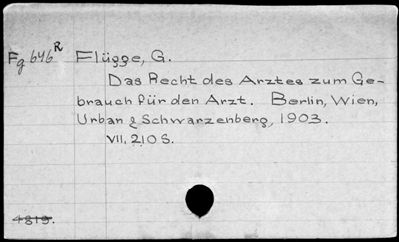 Fg 646 R Flügge, G.
Das Recht des Arztes zum Ge-
brauch für den Arzt. Berlin, Wien,
Urban & Schwarzenberg, 1903.
VII, 210 S.
4819.